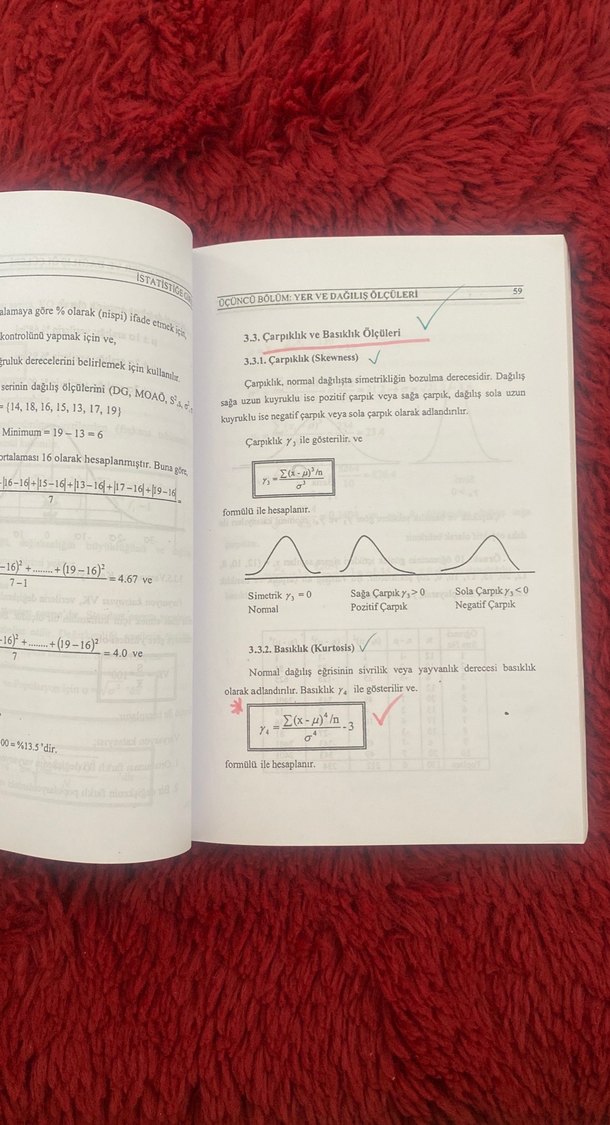 İSTATİSTİĞE
alamaya göre % olarak (nispi) ifade etmek için,
kontrolünü yapmak için ve,
ğruluk derecelerini belirlemek için kullanılır.
serinin dağılış ölçülerini (DG, MOAÖ, S²,
= {14, 18, 16, 15, 13, 17, 19}
Minimum = 19 − 13 = 6
ortalaması 16 olarak hesaplanmıştır. Buna göre,
|16-16|+|15-16|+|13-16|+|17-16|+|19-16| =
7
-16)² +........+(19−16)² = 4.67 ve
7−1
-16)² +........+(19−16)² = 4.0 ve
7
00 = %13.5'dir.
ÜÇÜNCÜ BÖLÜM: YER VE DAĞILIŞ ÖLÇÜLERİ 59
3.3. Çarpıklık ve Basıklık Ölçüleri
3.3.1. Çarpıklık (Skewness)
Çarpıklık, normal dağılışta simetrikliğin bozulma derecesidir. Dağılış
sağa uzun kuyruklu ise pozitif çarpık veya sağa çarpık, dağılış sola uzun
kuyruklu ise negatif çarpık veya sola çarpık olarak adlandırılır.
Çarpıklık γ₃ ile gösterilir. ve
γ₃ = ∑(x - μ)³/n
σ³
formülü ile hesaplanır.
Simetrik γ₃ = 0 Sağa Çarpık γ₃ > 0 Sola Çarpık γ₃ < 0
Normal Pozitif Çarpık Negatif Çarpık
3.3.2. Basıklık (Kurtosis)
Normal dağılış eğrisinin sivrilik veya yayvanlık derecesi basıklık
olarak adlandırılır. Basıklık γ₄ ile gösterilir ve.
γ₄ = ∑(x - μ)⁴/n - 3
σ⁴
formülü ile hesaplanır.